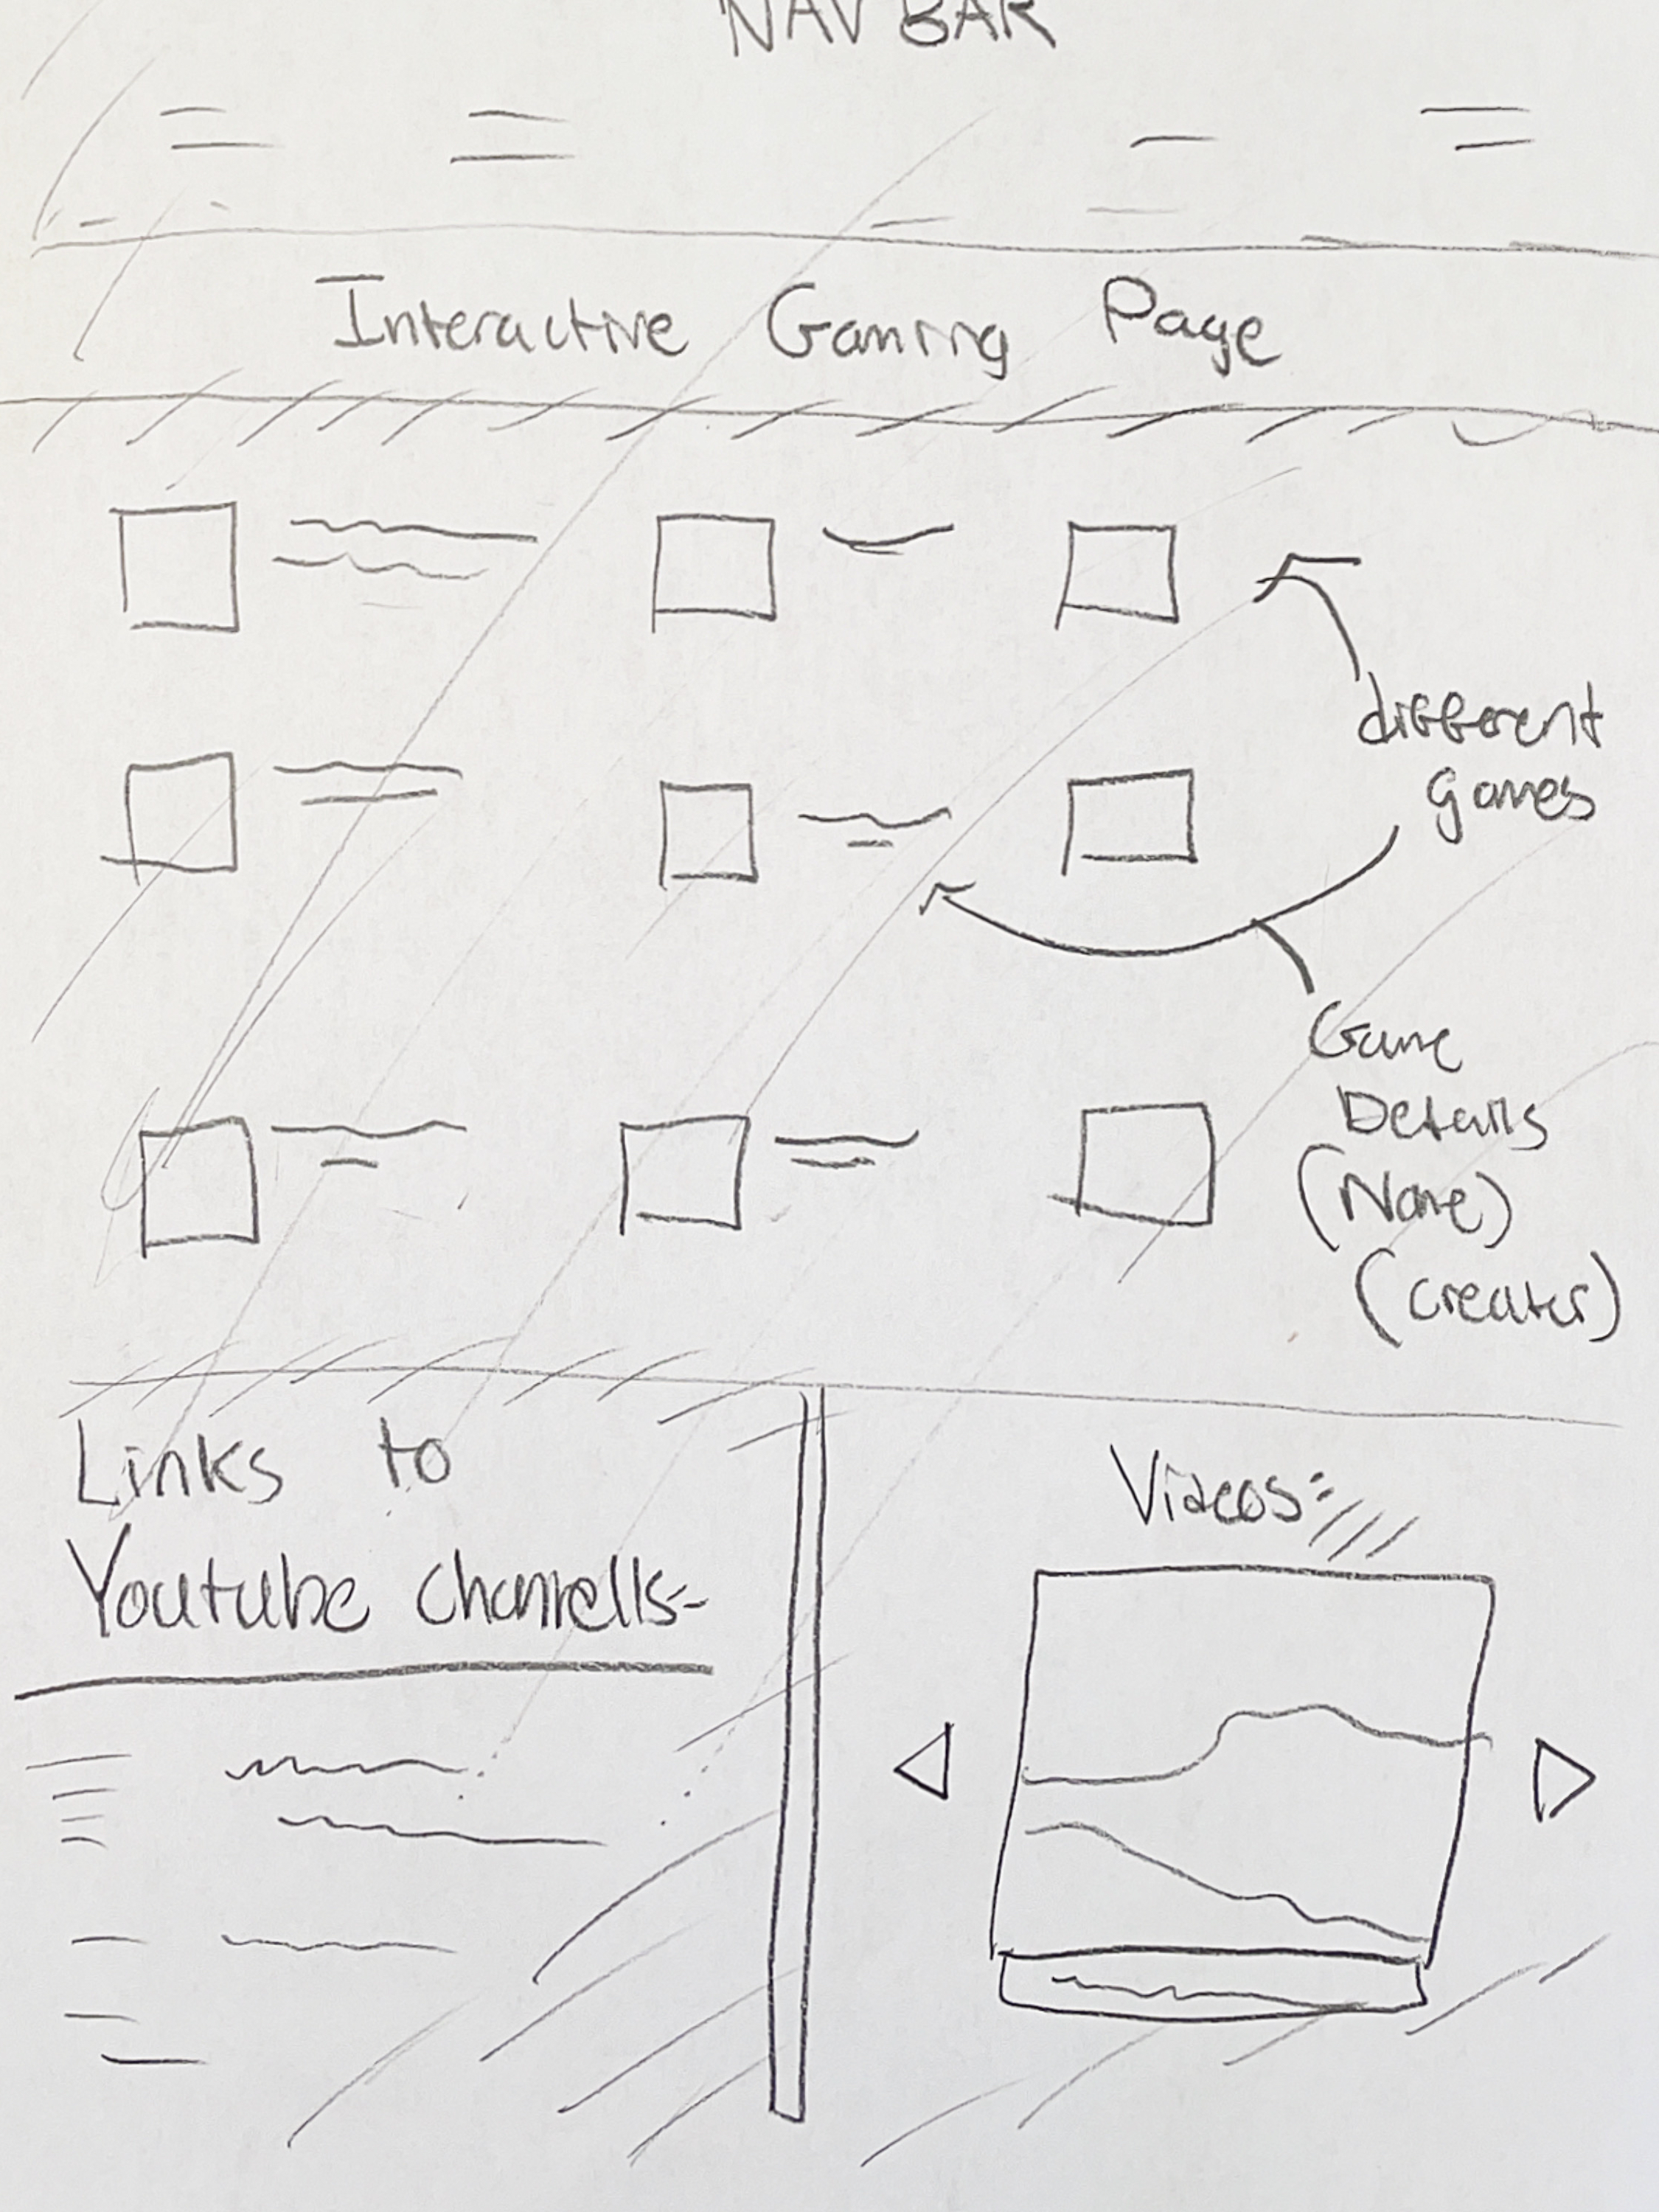 NAV BAR
Interactive Gaming Page
different
games
Game
Details
(Name)
(creator)
Links to
Youtube channells-
Videos: